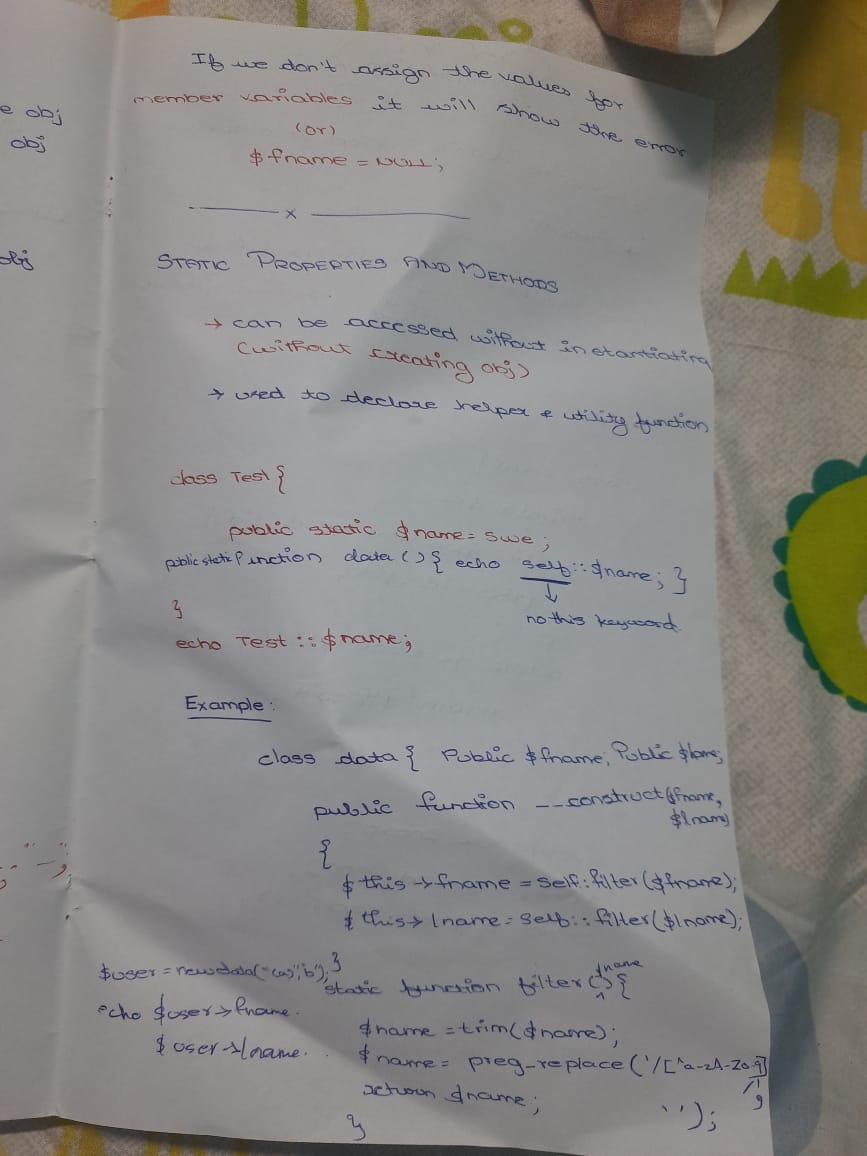 If we don't assign the values for
member variables it will show the error
(or)
$fname = NULL;
x
STATIC PROPERTIES AND METHODS
→ can be accessed without instantiating
(without creating obj)
→ used to declare helper & utility function
class Test {
public static $name = swe ;
public static function data () { echo self:: $name; }
↓
no this keyword.
}
echo Test :: $name;
Example :
class data { Public $fname; Public $lname;
public function __construct($fname,
$lname)
{
$this → fname = self::filter($fname);
$this → lname = self:: filter($lname);
}
static function filter( ) {
$name = trim($name);
$name = preg_replace('/[^a-zA-Z0-9]
/',
'');
return $name;
}
echo $user→fname.
$user→lname.
e obj
obj
obj